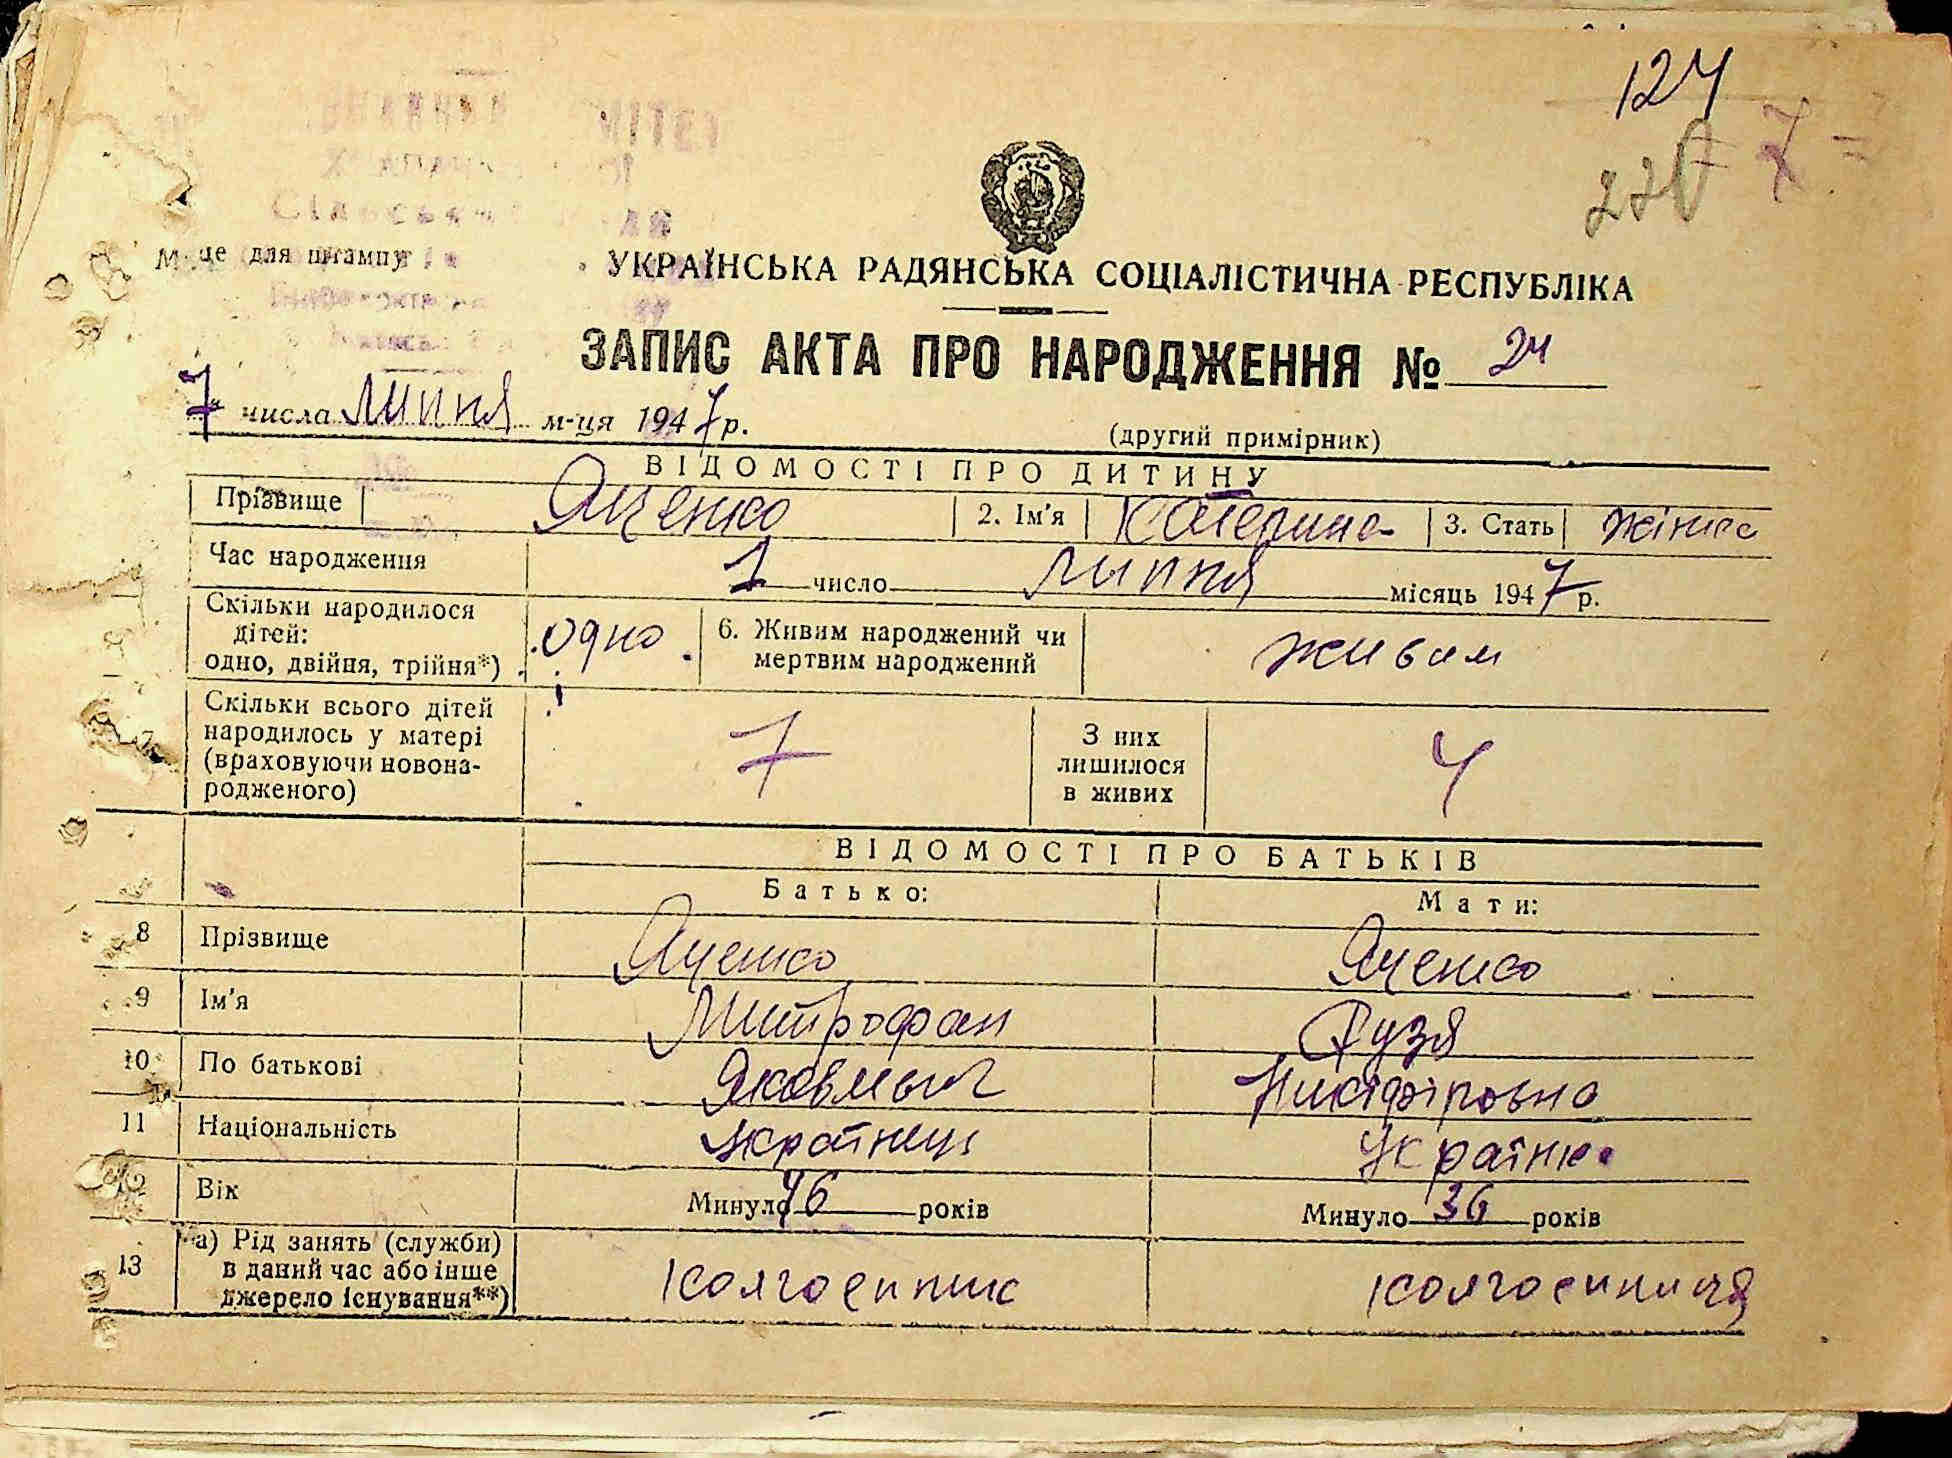 124
220 7 =
Сільськ
М це для штампу
УКРАЇНСЬКА РАДЯНСЬКА СОЦІАЛІСТИЧНА РЕСПУБЛІКА
ЗАПИС АКТА ПРО НАРОДЖЕННЯ № 24
7 числа липня м-ця 1947 р.
(другий примірник)
ВІДОМОСТІ ПРО ДИТИНУ
Прізвище Яценко 2. Ім'я Катерина 3. Стать жіноча
Час народження 1 число липня місяць 1947 р.
Скільки народилося
дітей:
одно, двійня, трійня*) одно 6. Живим народжений чи
мертвим народжений живим
Скільки всього дітей
народилось у матері
(враховуючи новона-
родженого) 7 З них
лишилося
в живих 4
ВІДОМОСТІ ПРО БАТЬКІВ
Батько: Мати:
8 Прізвище Яценко Яценко
9 Ім'я Митрофан Фузя
10 По батькові Яковлыч Никіфіровна
11 Національність Українец Українка
12 Вік Минуло 46 років Минуло 36 років
13 а) Рід занять (служби)
в даний час або інше
джерело існування**) колгоспник колгоспниця